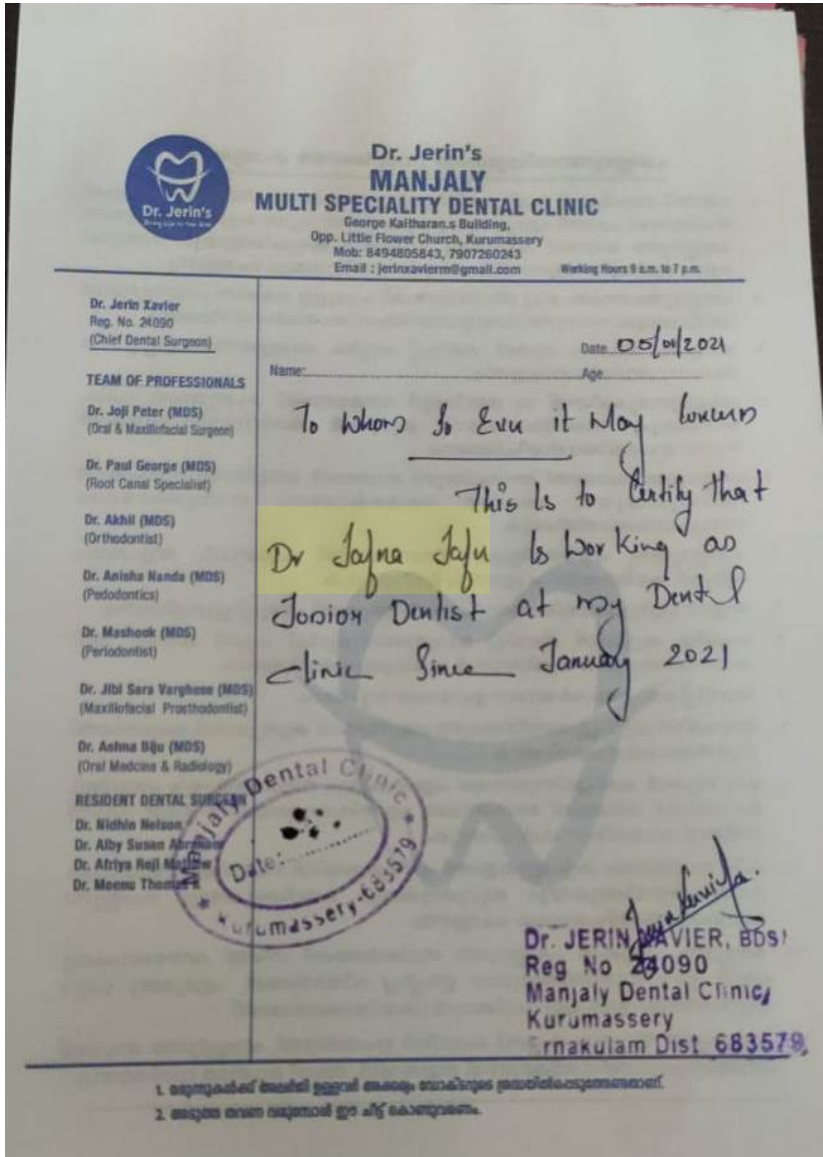 Dr. Jerin's
Dr. Jerin's
MANJALY
MULTI SPECIALITY DENTAL CLINIC
George Kaitharan.s Building,
Opp. Little Flower Church, Kurumassery
Mob: 8494805843, 7907260243
Email : jerinxavierm@gmail.com
Working Hours 9 a.m. to 7 p.m.
Dr. Jerin Xavier
Reg. No. 24090
(Chief Dental Surgeon)
TEAM OF PROFESSIONALS
Dr. Joji Peter (MDS)
(Oral & Maxillofacial Surgeon)
Dr. Paul George (MDS)
(Root Canal Specialist)
Dr. Akhil (MDS)
(Orthodontist)
Dr. Anisha Nanda (MDS)
(Pedodontics)
Dr. Mashook (MDS)
(Periodontist)
Dr. Jibi Sara Varghese (MDS)
(Maxillofacial Prosthodontist)
Dr. Ashna Biju (MDS)
(Oral Medcine & Radiology)
RESIDENT DENTAL SURGEON
Dr. Nidhin Nelson
Dr. Alby Susan Abraham
Dr. Afriya Reji Mathew
Dr. Meenu Thomas
Date
Name: Age
To Whom So Ever it May Concern
This Is to Certify that
Dr Jafna Jafu Is Working as
Junior Dentist at my Dental
Clinic Since January 2021
Manjaly Dental Clinic
Date:
Kurumassery-683579
Dr. JERIN XAVIER, BDS
Reg No 24090
Manjaly Dental Clinic,
Kurumassery
Ernakulam Dist 683579,
1. മരുന്നുകൾക്ക് അലർജി ഉള്ളവർ അക്കാര്യം ഡോക്ടറുടെ ശ്രദ്ധയിൽപ്പെടുത്തേണ്ടതാണ്.
2. അടുത്ത തവണ വരുമ്പോൾ ഈ ചീട്ട് കൊണ്ടുവരണം.